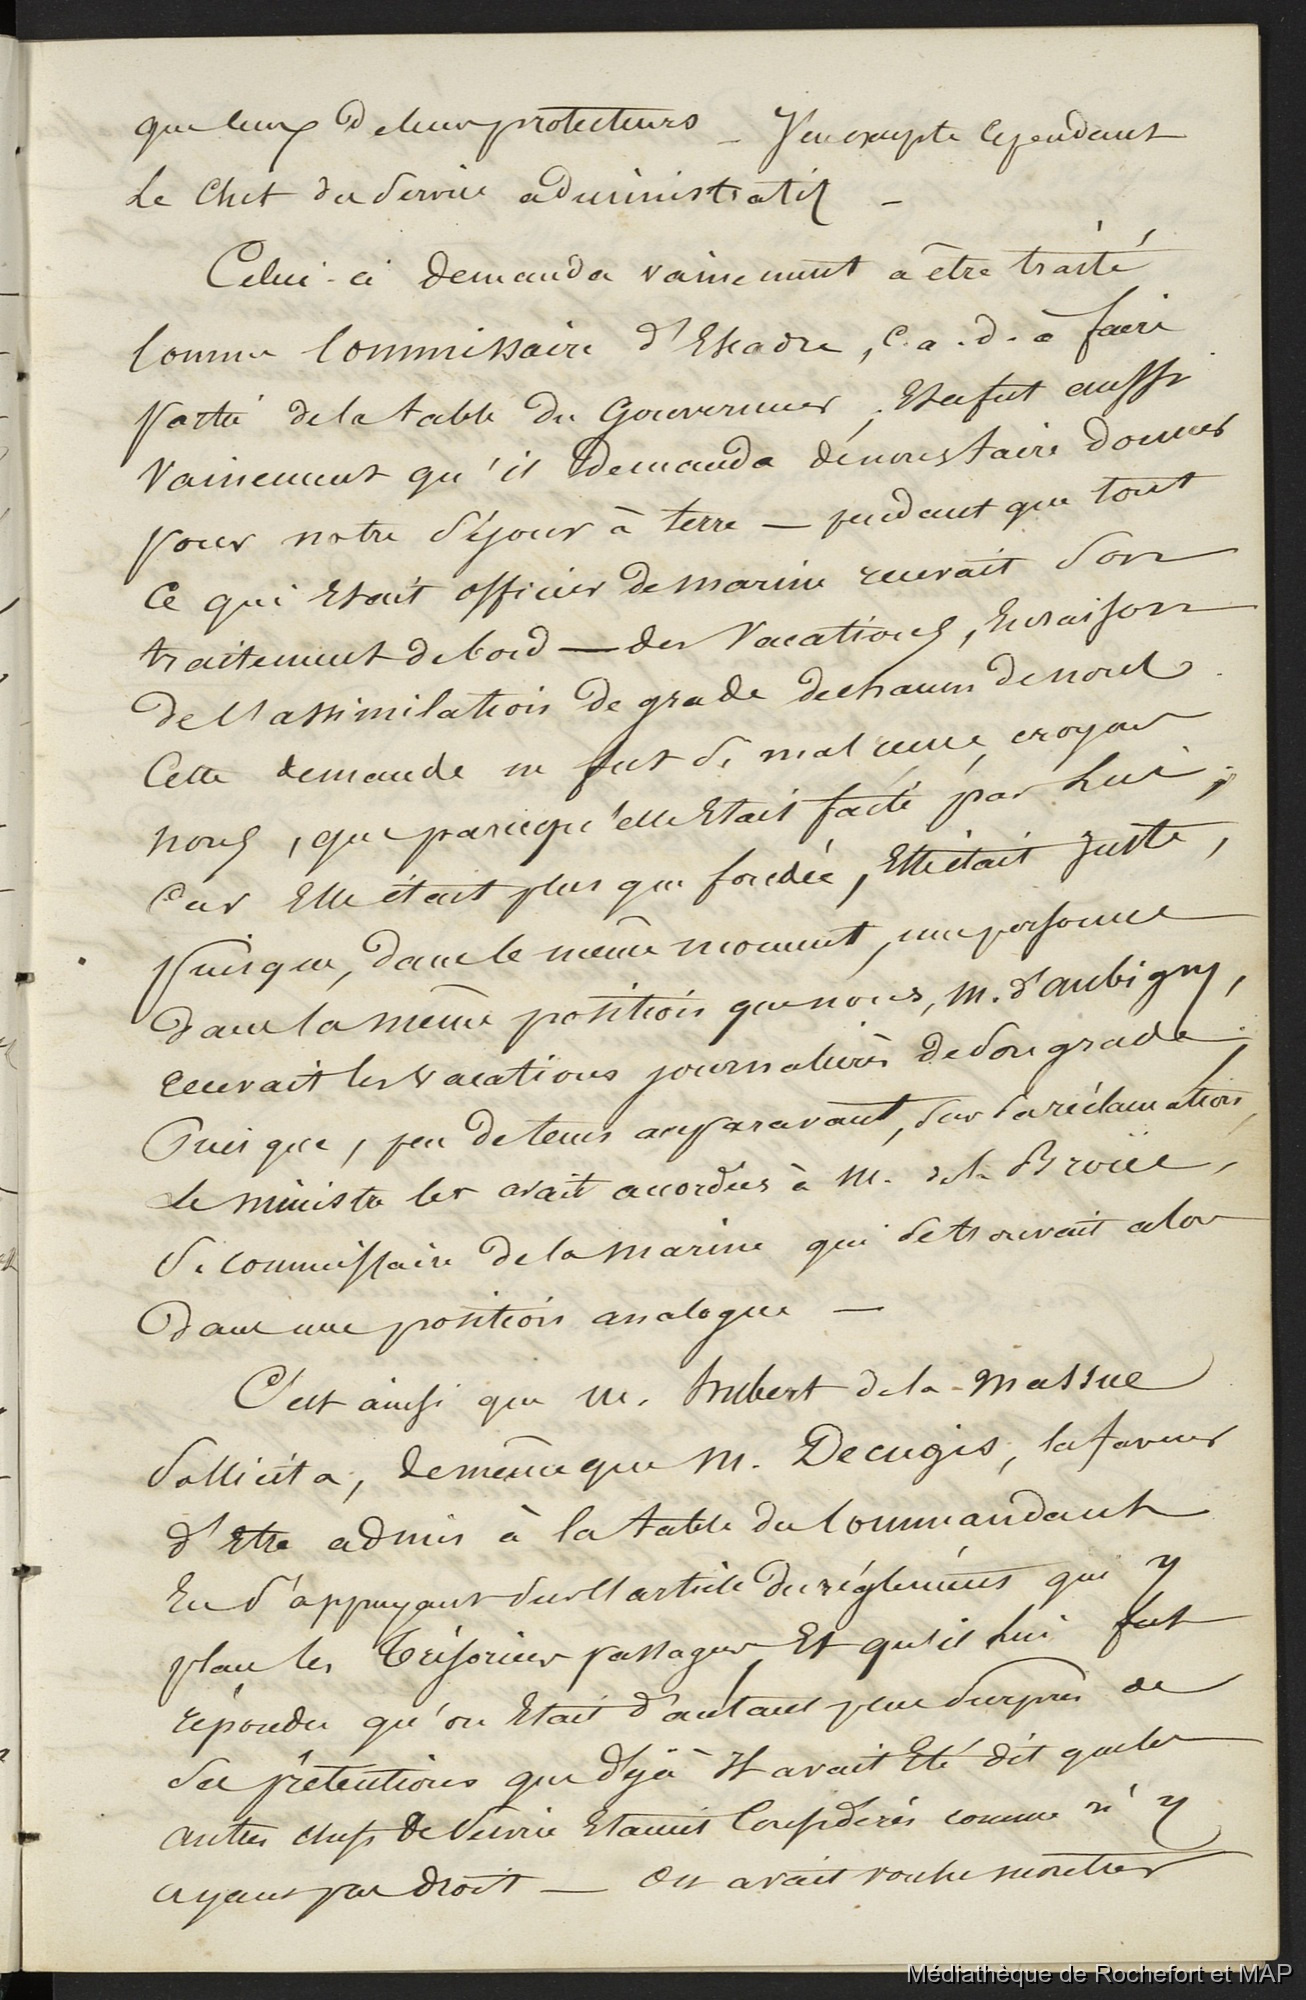 que ceux de leurs protecteurs — J'en excepte cependant
Le Chef du Service administratif —
Celui-ci demanda vainement à être traité
Comme Commissaire d'Escadre, c.a.d. à faire
partie de la table du Gouverneur, Et ce fut aussi
Vainement qu'il demanda de nous faire donner
pour notre séjour à terre — pendant que tout
ce qui Etait officier de marine recevait son
traitement de bord — des Vacations, En raison
de l'assimilation de grade de chacun de nous.
Cette demande ne fut si mal reçue, croyons
nous, que parcequ'elle Etait faite par Lui ;
Car Elle était plus que fondée, Elle était juste,
puisque, dans le même moment, une personne
dans la même position que nous, M. d'aubigny,
recevait les vacations journalières de son grade ;
Puisque, peu de tems auparavant, sur sa réclamation,
Le ministre les avait accordées à M. de la Broüe,
S. commissaire de la marine qui se trouvait alors
Dans une position analogue —
C'est ainsi que M. Imbert de la-Massue
Sollicita, de même que M. Decugis, la faveur
d'Etre admis à la table du Commandant
En s'appuyant sur l'article du réglement qui y
place les Trésoriers passagers Et qu'il lui fut
répondu qu'on Etait d'autant plus surpris de
ses prétentions que déjà Il avait Eté dit que les
autres chefs de service Etaient Considérés comme n'y
ayant pas droit — On avait voulu montrer
Médiathèque de Rochefort et MAP